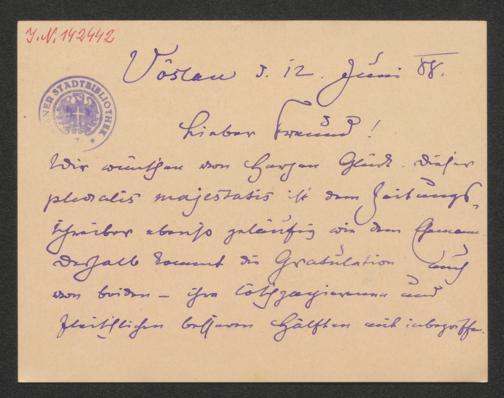 I.N. 142442
WIENER STADTBIBLIOTHEK
Vöslau d. 12. Juni 88.
Lieber Freund!
Wir wünschen von Herzen Glück. Dieser
pluralis majestatis ist dem Zeitungs-
schreiber ebenso geläufig wie dem
Deshalb kommt die Gratulation auch
von beiden – ihre und
fleischlichen besseren Hälften mit inbegriffen.